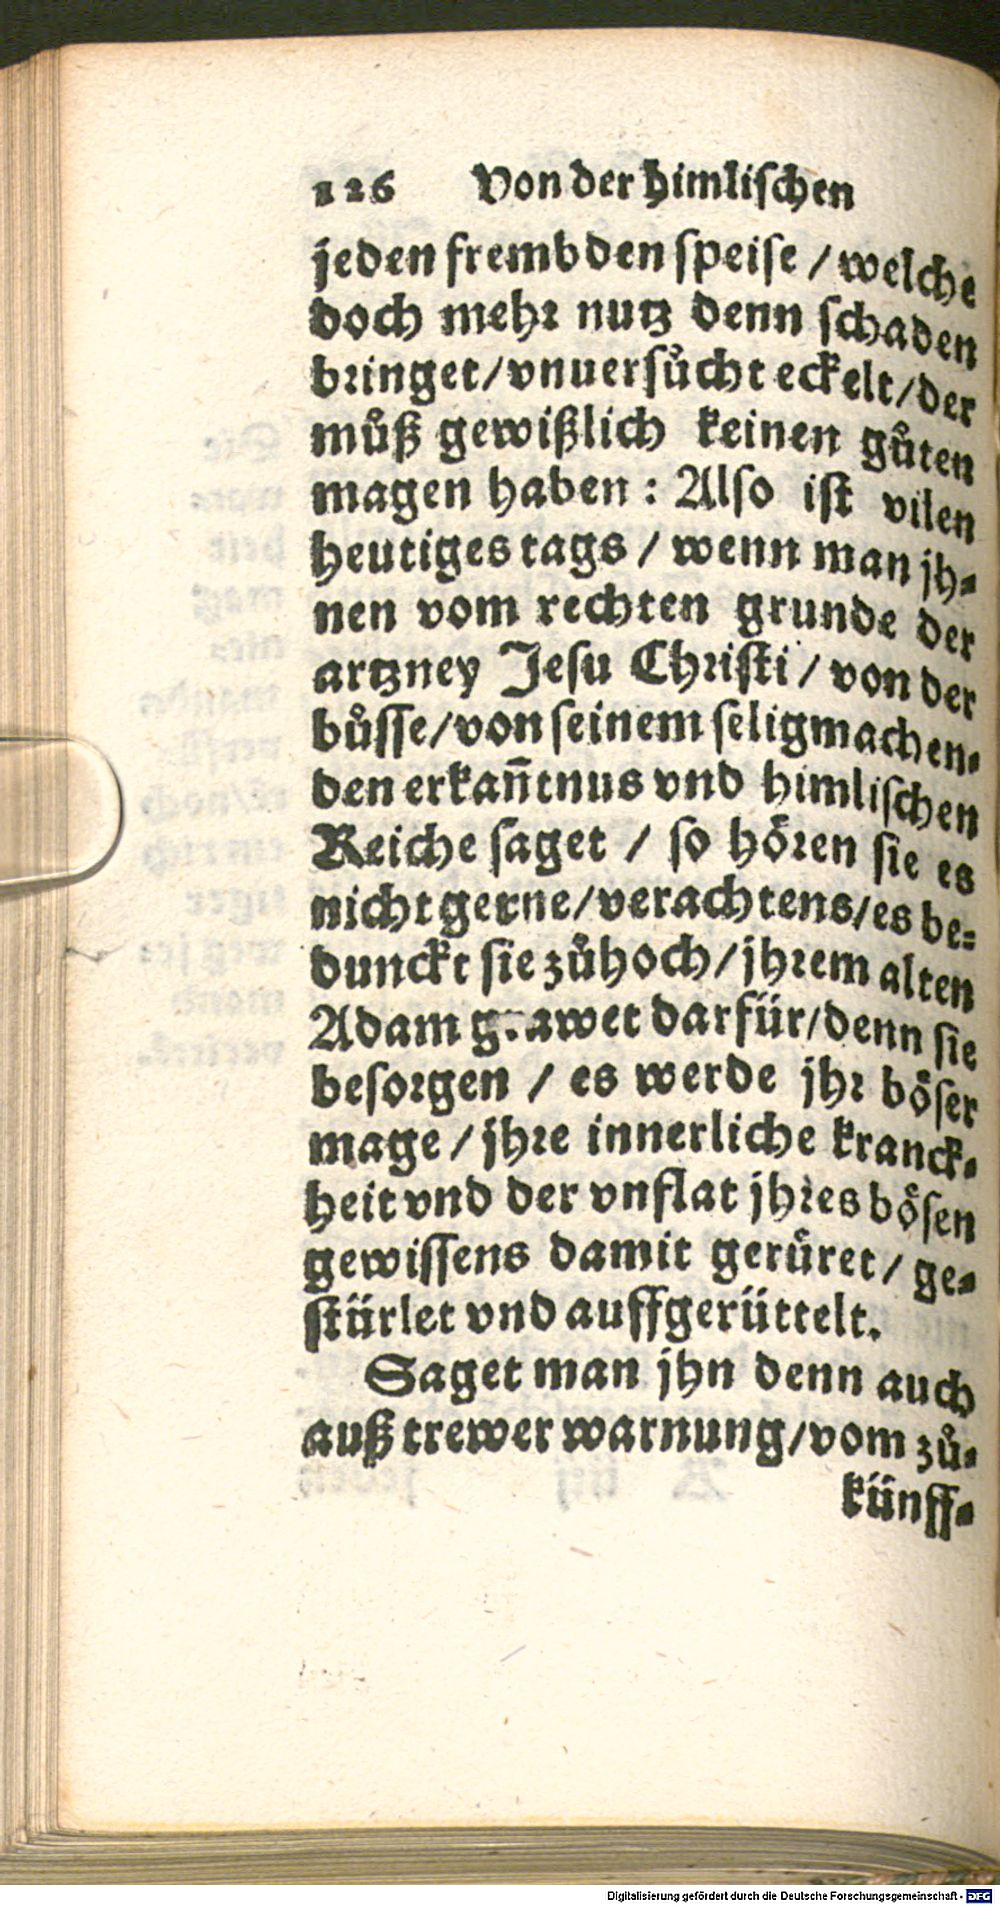 126 Von der himlischen
jeden frembden speise / welche
doch mehr nutz denn schaden
bringet / vnuersůcht eckelt / der
můß gewißlich keinen gůten
magen haben : Also ist vilen
heutiges tags / wenn man jh⸗
nen vom rechten grunde der
artzney Jesu Christi / von der
bůsse / von seinem seligmachen⸗
den erkañtnus vnd himlischen
Reiche saget / so hoͤren sie es
nicht gerne / verachtens / es be⸗
dunckt sie zůhoch / jhrem alten
Adam grawet darfür / denn sie
besorgen / es werde jhr boͤser
mage / jhre innerliche kranck⸗
heit vnd der vnflat jhres boͤsen
gewissens damit geruͤret / ge⸗
stürlet vnd auffgerüttelt.
Saget man jhn denn auch
auß trewer warnung / vom zů⸗
künff⸗
Digitalisierung gefördert durch die Deutsche Forschungsgemeinschaft - DFG